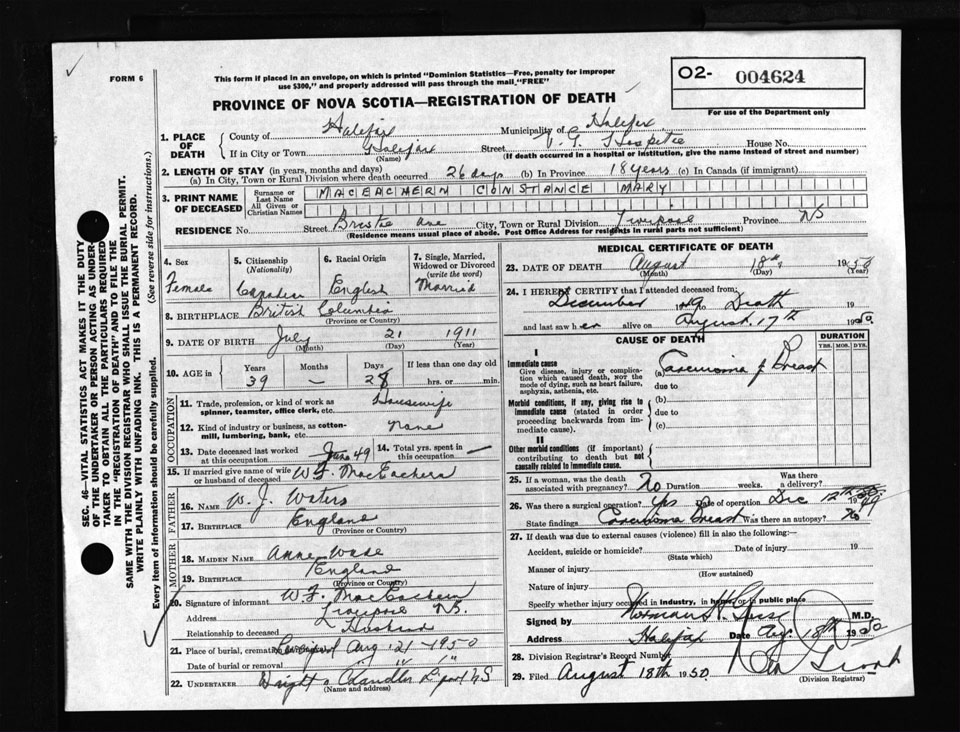 FORM 6
This form if placed in an envelope, on which is printed "Dominion Statistics—Free, penalty for improper
use $300," and properly addressed will pass through the mail "FREE"
O2- 004624
For use of the Department only
PROVINCE OF NOVA SCOTIA—REGISTRATION OF DEATH
1. PLACE OF DEATH
County of Halifax Municipality of Halifax
If in City or Town Halifax Street V. G. Hospital House No.
(Name) (If death occurred in a hospital or institution, give the name instead of street and number)
2. LENGTH OF STAY (in years, months and days)
(a) In City, Town or Rural Division where death occurred 26 days (b) In Province 18 years (c) In Canada (if immigrant)
3. PRINT NAME OF DECEASED
Surname or Last Name MACEACHERN CONSTANCE MARY
All Given or Christian Names
RESIDENCE No. Street Ave City, Town or Rural Division Liverpool Province NS
(Residence means usual place of abode. Post Office Address for residents in rural parts not sufficient)
4. Sex Female
5. Citizenship (Nationality) Canadian
6. Racial Origin English
7. Single, Married, Widowed or Divorced (write the word) Married
8. BIRTHPLACE British Columbia
(Province or Country)
9. DATE OF BIRTH July 21 1911
(Month) (Day) (Year)
10. AGE in Years 39 Months — Days 28 If less than one day old hrs. or min.
OCCUPATION
11. Trade, profession, or kind of work as spinner, teamster, office clerk, etc. Housewife
12. Kind of industry or business, as cotton-mill, lumbering, bank, etc. none
13. Date deceased last worked at this occupation 49
14. Total yrs. spent in this occupation —
15. If married give name of wife or husband of deceased W.F. MacEachern
FATHER
16. NAME W. J. Waters
17. BIRTHPLACE England
(Province or Country)
MOTHER
18. MAIDEN NAME Anne Wade
19. BIRTHPLACE England
(Province or Country)
20. Signature of informant W.F. MacEachern
Address Liverpool NS.
Relationship to deceased Husband
21. Place of burial, cremation Liverpool Aug 21-1950
Date of burial or removal " "
22. UNDERTAKER Wright & Chandler L'pool NS
(Name and address)
MEDICAL CERTIFICATE OF DEATH
23. DATE OF DEATH August 18th 1950
(Month) (Day) (Year)
24. I HEREBY CERTIFY that I attended deceased from:
December 1949 to Death 19
and last saw her alive on August 17th 1950
CAUSE OF DEATH
DURATION
YRS. MOS. DYS.
I
Immediate cause
Give disease, injury or complication which caused death, not the mode of dying, such as heart failure, asphyxia, asthenia, etc.
(a) Carcinoma of Breast
due to
Morbid conditions, if any, giving rise to immediate cause (stated in order proceeding backwards from immediate cause).
(b)
due to
(c)
II
Other morbid conditions (if important) contributing to death but not causally related to immediate cause.
25. If a woman, was the death associated with pregnancy? No Duration weeks. Was there a delivery?
26. Was there a surgical operation? Yes Date of operation Dec 12th 1949
State findings Carcinoma Breast Was there an autopsy? No
27. If death was due to external causes (violence) fill in also the following:
Accident, suicide or homicide? Date of injury 19
(State which)
Manner of injury
(How sustained)
Nature of injury
Specify whether injury occurred in industry, in home, or in public place
Signed by Norman H. M.D.
Address Halifax Date Aug 18th 1950
28. Division Registrar's Record Number
29. Filed August 18th 1950.
(Division Registrar)
SEC. 46—VITAL STATISTICS ACT MAKES IT THE DUTY
OF THE UNDERTAKER OR PERSON ACTING AS UNDER-
TAKER TO OBTAIN ALL THE PARTICULARS REQUIRED
IN THE "REGISTRATION OF DEATH" AND TO FILE THE
SAME WITH THE DIVISION REGISTRAR WHO SHALL ISSUE THE BURIAL PERMIT.
WRITE PLAINLY WITH UNFADING INK. THIS IS A PERMANENT RECORD.
Every item of information should be carefully supplied. (See reverse side for instructions.)